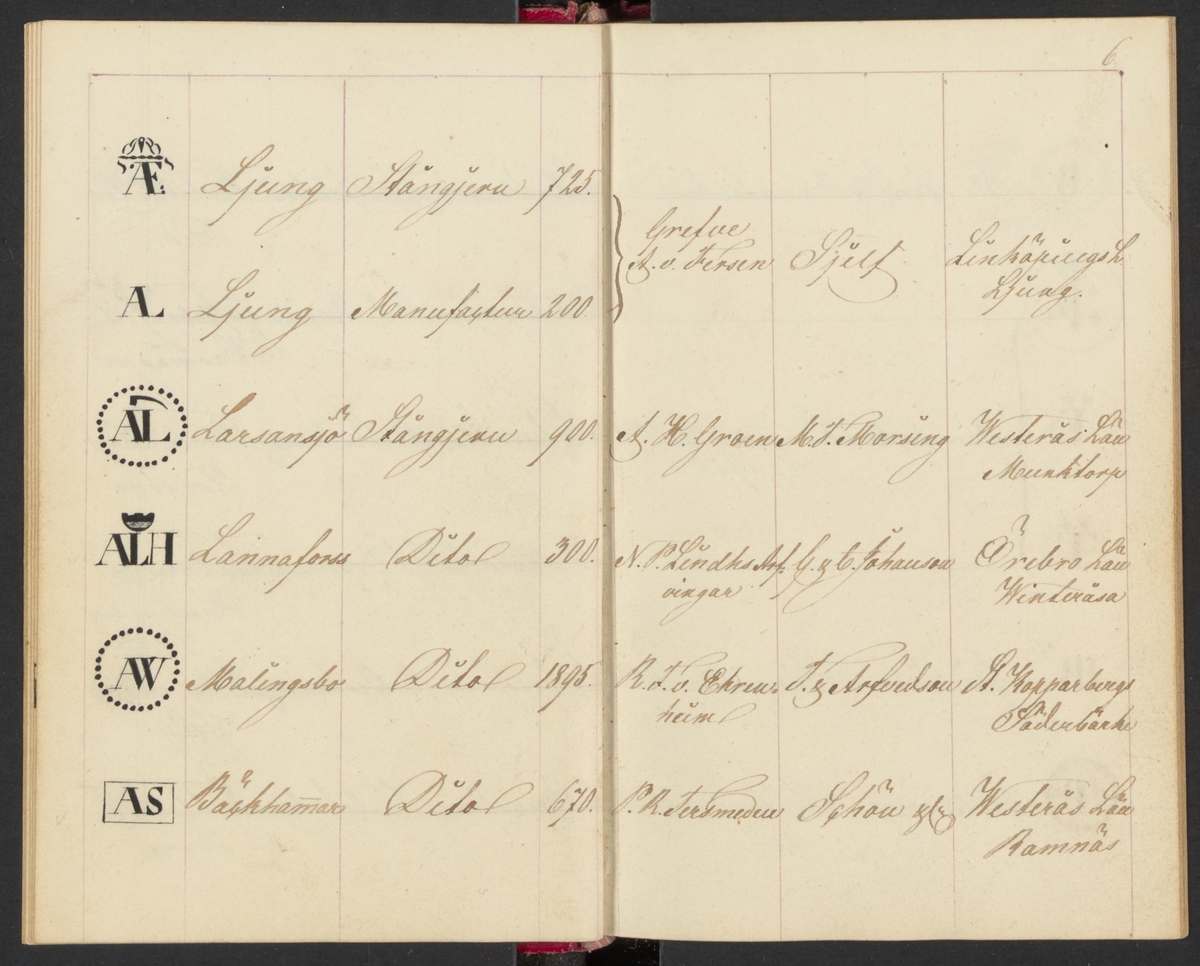 6
Æ Ljung Stångjern 725.
Grefve
A. v. Fersen Sjelf Linköpings L.
Ljung.
AL Ljung Manufactur 200.
AL Larsansjö Stångjern 900. A. H. Groen M. T. Morsing Westerås Län
Munktorp
ALH Lannaforss Dito 300. N. P. Lindhs Arf- G. & C. Johanson Örebro Län
vingar Winteråsa
AW Malingsbo Dito 1895. R. F. v. Ehren- & Arfvedson St. Kopparbergs
heim Söderbärke
AS Bäckhammar Dito 670. P. R. Tersmeden Schön & Co Westerås Län
Ramnäs